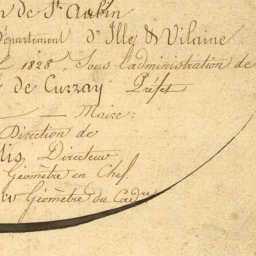 n de St. Aubin
Département d'Ille & Vilaine
1828. Sous l'administration de
de Curzay Préfet
Maire:
Direction de
lis, Directeur
Géomètre en Chef.
Géomètre du Cad